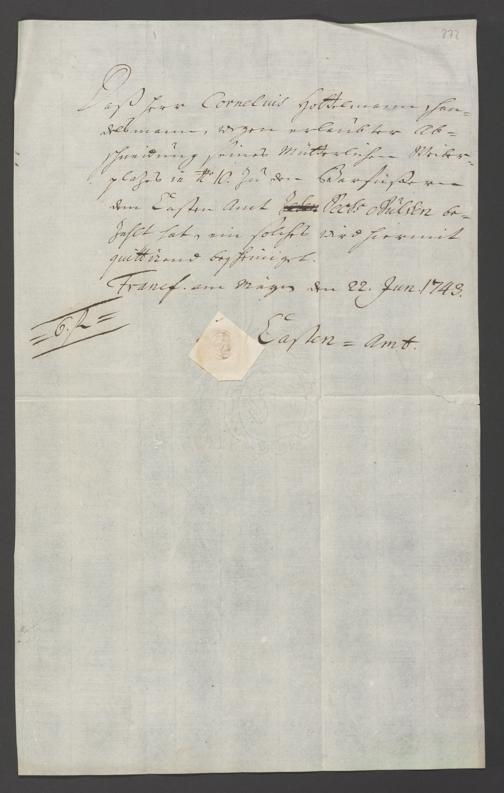 272
Daß Herr Cornelius Hottelmann Han-
delsmann, wegen erlaubter Ab-
schneidung seines Mütterlichen Weiber-
platzes in N.º 10. zu den Barfüßern
dem Casten Amt Sechs Gulden be-
zahlt hat, ein solches wird hiermit
quittirend bescheiniget.
Francf. am Mayn den 22. Jun. 1743.
=6. f=
Casten = Amt.